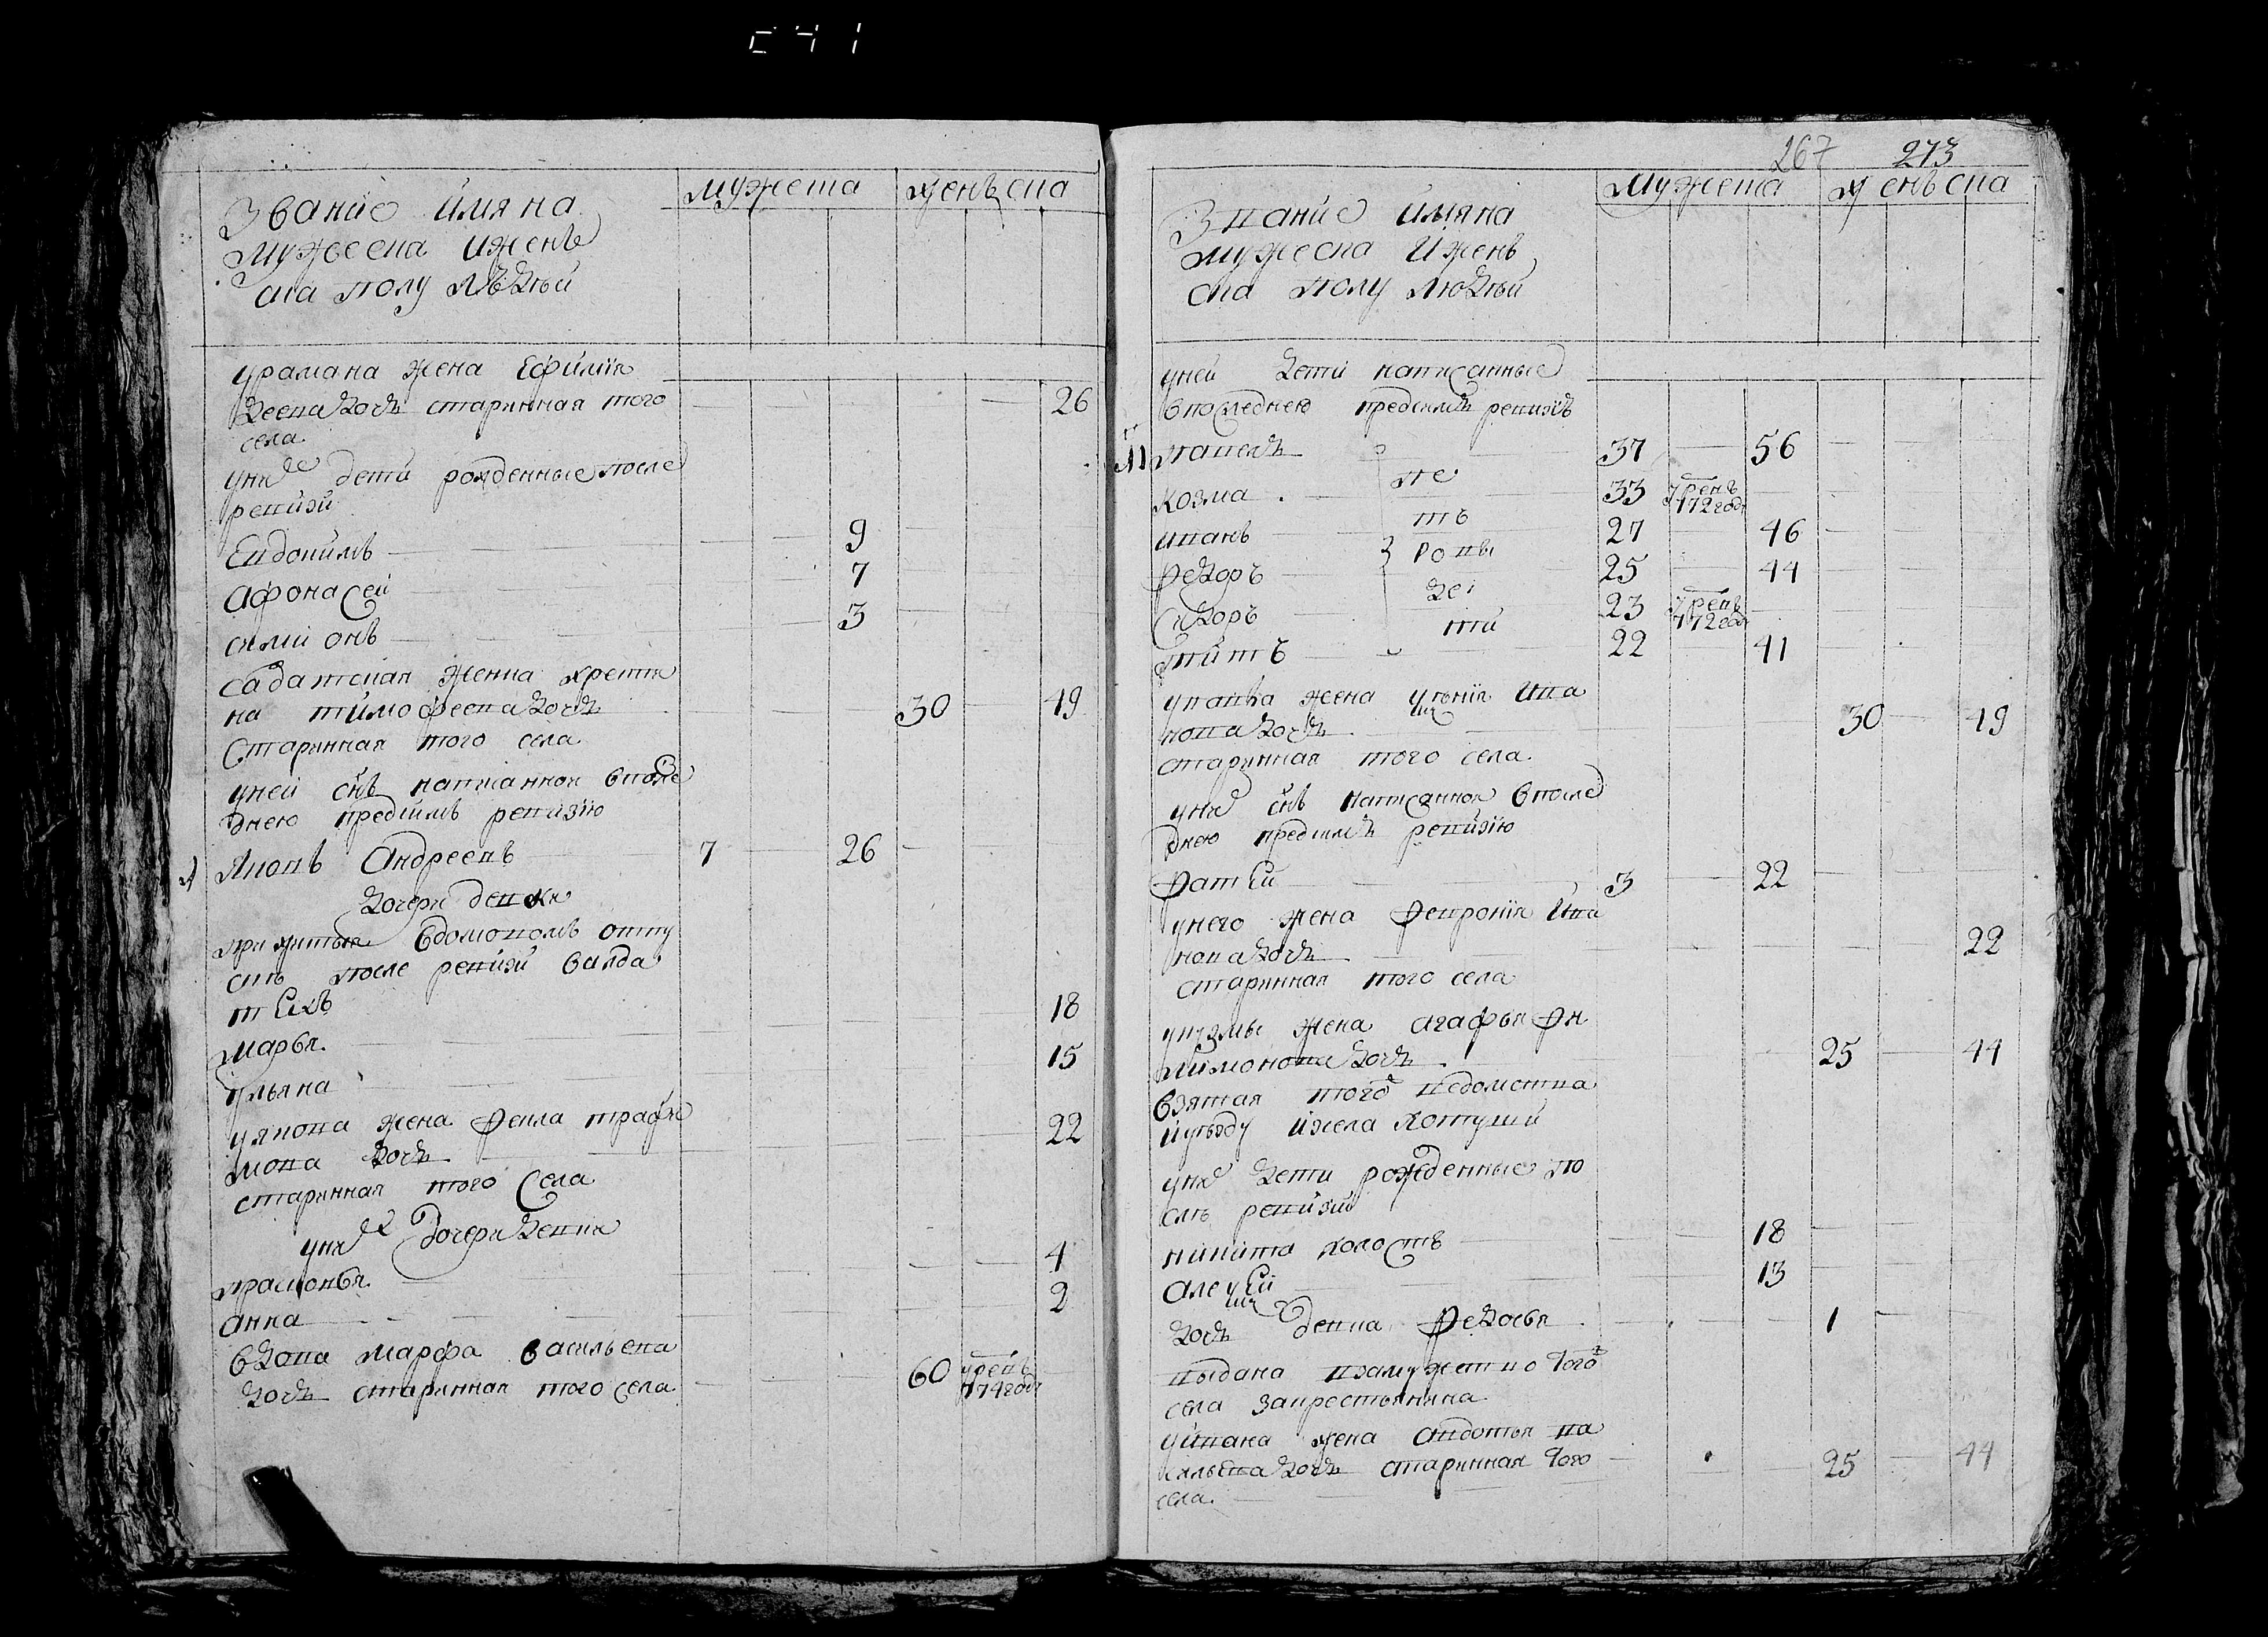 Звание имяна
мужеска ижень
ска полу людъи
мужеска
женьска
урамана жена Ефимия
26
села
уних дети рожденные после
ревизи
Евдокимъ 9
Афонасей 7
симионъ 3
садатская женка хрести
на тимофеева дочь 30 49
Старинная того села
уней снъ написанной впосле
днею предсимъ ревизию
Яковъ Андреевъ 7 26
дочери девки
прижитые вдомовомъ отпу
скъ после ревизи всалда
техъ
марья 18
ульяна 15
уякова жена фекла трафи
мова дочь 22
старинная того Села
уних дочери девки
прасковья 4
анна 2
вдова марфа васильева
дочь старинная того села 60 умре въ 774 годе
267 273
Звание имяна
мужеска ижень
ска полу людъи
мужеска
женьска
уней дети написанные
впоследнею предсимъ ревизию
павелъ 37 56
козма 33 умре въ 772 годе
иванъ 27 46
федоръ 25 44
сидоръ 23 умре въ 772 годе
титъ 22 41
пе
тъ
ровы
де
ти
упавла жена улья­на ива
нова дочь 30 49
старинная того села
уних снъ написанной впосле
днею предсимъ ревизию
фатей 3 22
унего жена феврония ива
нова дочь 22
старинная того села
укузмы жена агафья фи
лимонова дочь 25 44
взятая того ведомства
иуъзду исела
уних дети рожденные по
слъ ревизи
никита холостъ 18
алексей 13
дочь девка федосья 1
выдана взамужетво того
села закрестьянина
уивана жена авдотья ва
сильева дочь старинная того 25 44
села